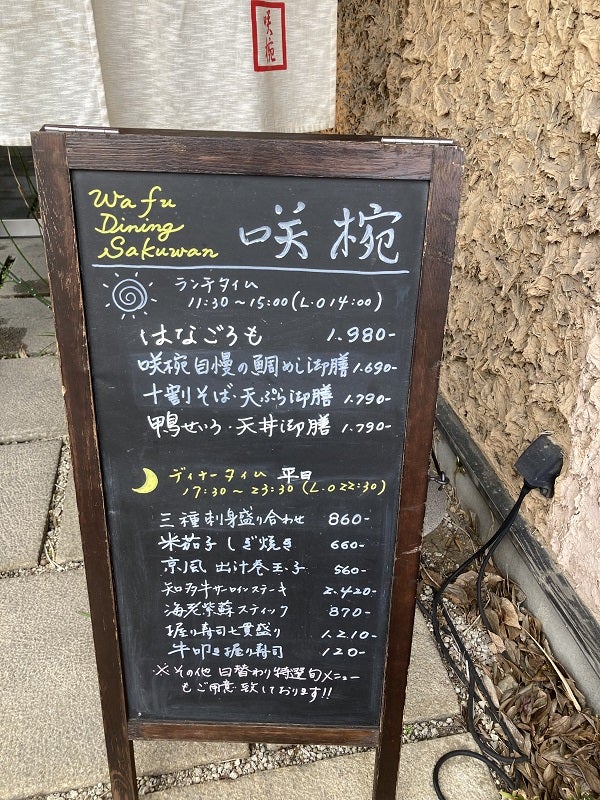 咲椀
Wa fu
Dining
Sakuwan
咲椀
ランチタイム
11:30～15:00 (L.O 14:00)
はなごろも 1.980-
咲椀自慢の鯛めし御膳 1.690-
十割そば・天ぷら御膳 1.790-
鴨せいろ・天丼御膳 1.790-
ディナータイム 平日
17:30～23:30 (L.O 22:30)
三種刺身盛り合わせ 860-
米茄子しぎ焼き 660-
京風 出汁巻玉子 560-
知多牛サーロインステーキ 2.420-
海老紫蘇スティック 870-
握り寿司七貫盛り 1.210-
牛叩き握り寿司 120-
※その他 日替わり特選旬メニュー
もご用意致しております!!